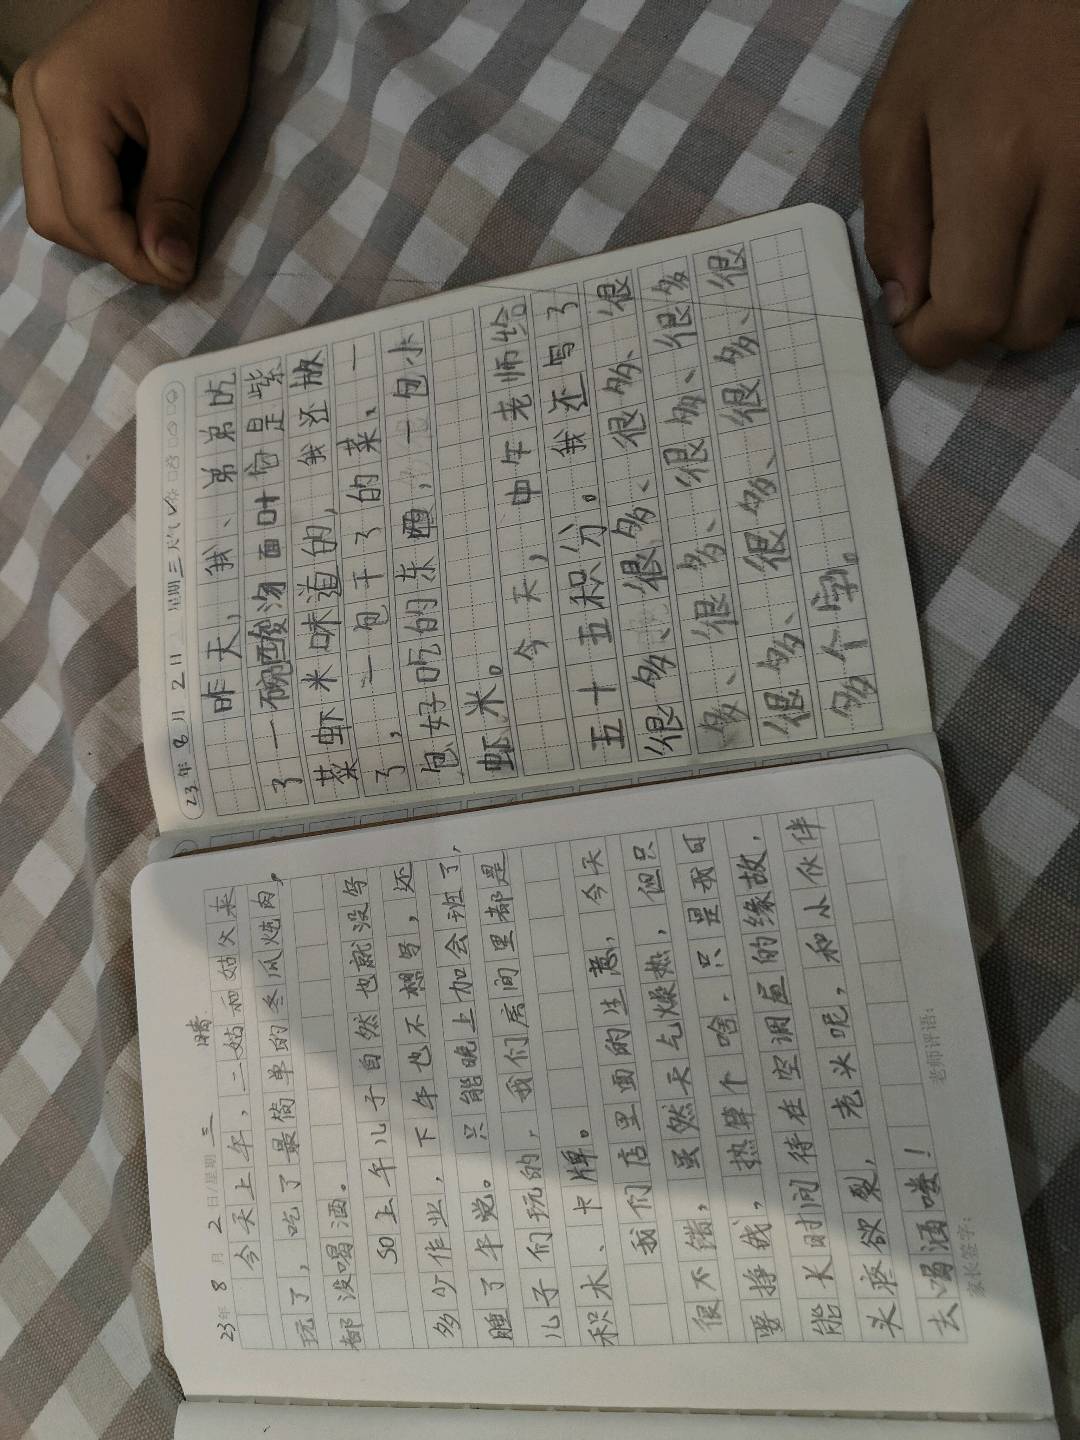 23年 8月 2日 星期三 天气
昨天，我、弟弟吃
了一碗酸汤面叶仿是紫
菜虾米味道的，我还散
了，一包干了的菜、一
包好吃的东西，一包小
虾米。
今天，中午老师给
五十五积分。我还写了
很多、很多、很多、很
多、很多、很多、很多
很多、很多、很多、很
多个字。
23年 8月 2日/星期三 晴
今天上午，二姑和姑父来
玩了，吃了最简单的冬瓜炖肉，
都没喝酒。
50上午儿子自然也就没写
多少作业，下午也不想写，还
睡了午觉。只能晚上加会班了，
儿子们玩的，我们房间里都是
积木、卡牌。
我们店里面的生意，今天
很不错，虽然天气燥热，但只
要挣钱，热算个啥，只是我可
能长时间待在空调屋的缘故，
头疼欲裂，老头呢，和小伙伴
去喝酒喽！
家长签字： 老师评语：